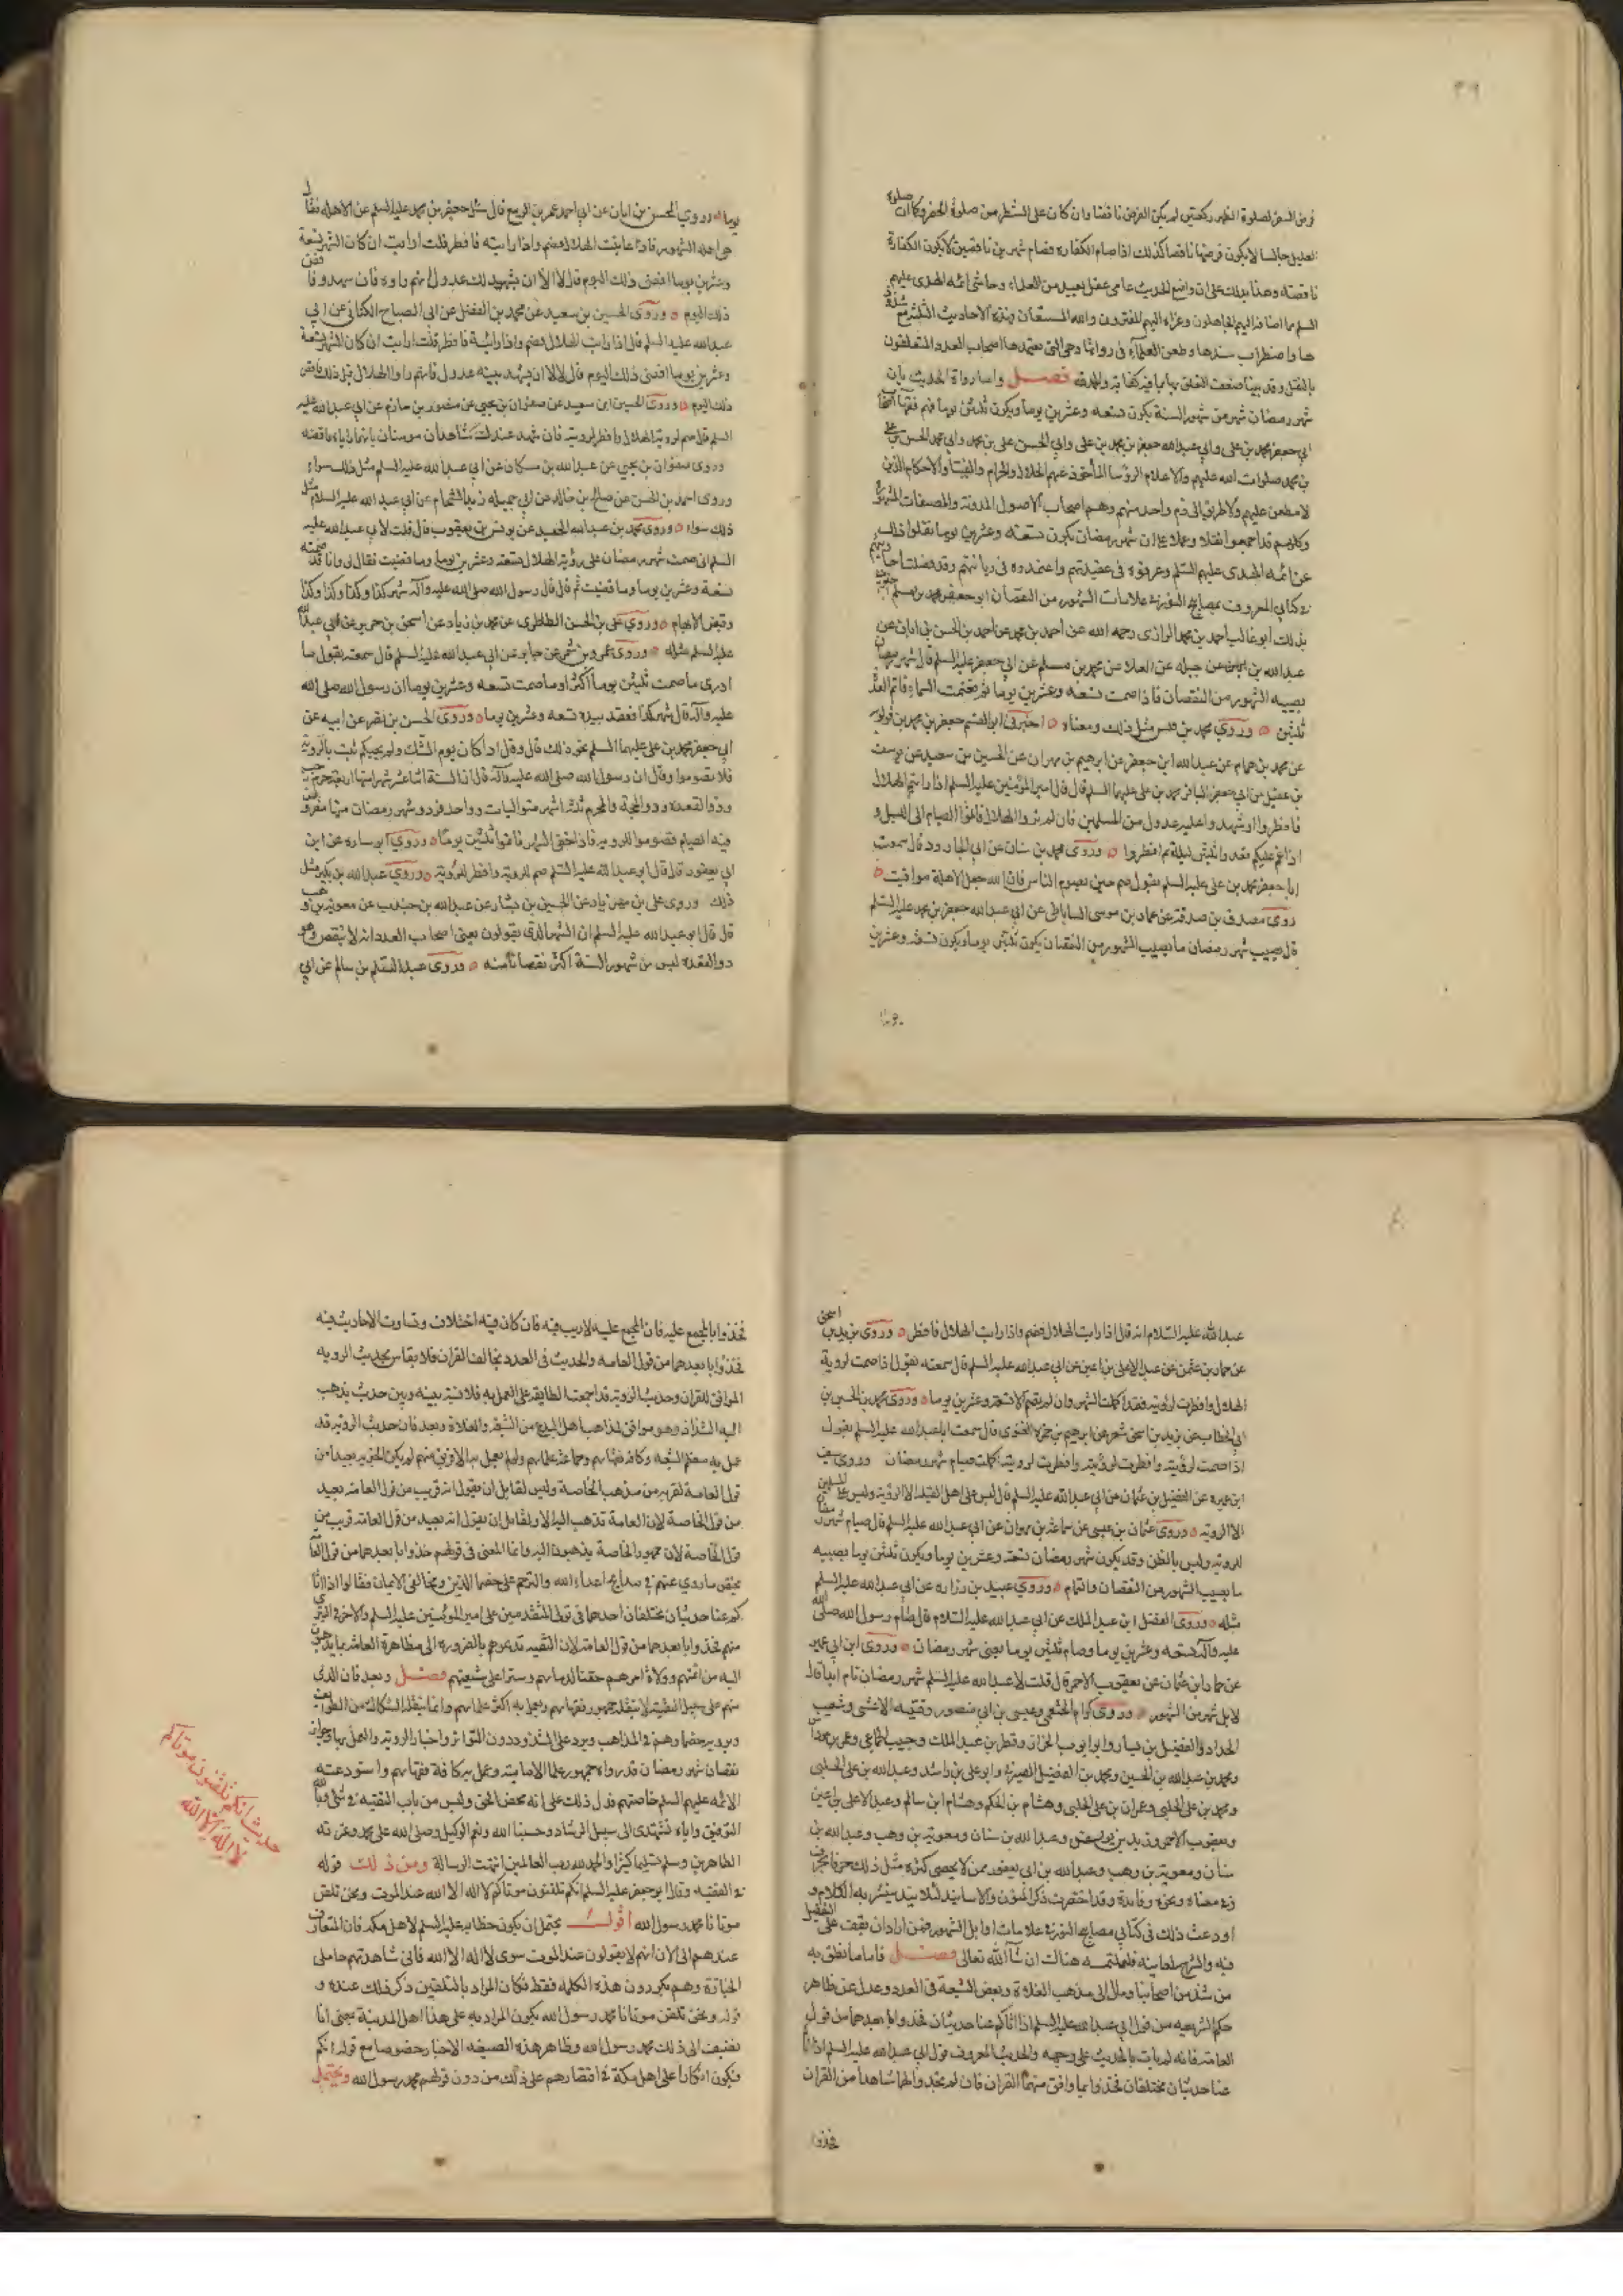 ٣٩
فرض السفر لصلوة الظهر ركعتين لم يكن الفرض ناقصا وان كان على الشطر من صلوة الحضر وكما ان صلوة
العليل جالسا لا يكون فرضها ناقصا كذلك اذا صام الكفارة فصام شهرين ناقصين لا يكون الكفارة
ناقصة وهذا يدلك على ان واضع الحديث عامي غفل بعيد من العلماء وحاشى ائمة الهدى عليهم
السلم مما اضافه اليهم الجاهلون وعزاه اليهم المفترون والله المستعان وهذه الاحاديث الثلثة مع شذوذ
ها واضطراب سندها وطعن العلماء في رواتها هي التي يعتمدها اصحاب العدد المتعلقون
بالنقل وقد بينا ضعف التعلق بها بما فيه كفاية والحمد لله فصل واما رواة الحديث بان
شهر رمضان شهر من شهور السنة يكون تسعة وعشرين يوما ويكون ثلثين يوما فهم فقهاء اصحاب
ابي جعفر محمد بن على وابي عبد الله جعفر بن محمد بن على وابي الحسن على بن محمد وابي محمد الحسن بن على
بن محمد صلوات الله عليهم والاعلام الرؤسا المأخوذ عنهم الحلال والحرام والفتيا والاحكام الذين
لا مطعن عليهم ولا طريق الى ذم واحد منهم وهم اصحاب الاصول المدونة والمصنفات المشهورة
وكلهم قد اجمعوا نقلا وعملا على ان شهر رمضان يكون تسعة وعشرين يوما نقلوا ذلك
عن ائمة الهدى عليهم السلم وعرفوه في عقيدتهم واعتمدوه في ديانتهم وقد فصلت احاديثهم
في كتابي المعروف بمصابيح النور في علامات الشهور من النقصان ابو جعفر محمد بن مسلم
بذلك ابو غالب احمد بن محمد الرازي رحمه الله عن احمد بن محمد عن احمد بن الحسن بن ابان عن
عبد الله بن جبله عن العلا عن محمد بن مسلم عن ابي جعفر عليه السلم قال شهر رمضان
يصيبه ما يصيب الشهور من النقصان فاذا صمت تسعة وعشرين يوما ثم تغيمت السماء فاتم العدة
ثلثين وروى محمد بن قيس مثل ذلك ومعناه اخبرني ابو القسم جعفر بن محمد بن قولويه
عن محمد بن همام عن عبد الله ابن جعفر عن ابرهيم بن مهزيار عن الحسين بن سعيد عن يوسف
بن عقيل عن ابي جعفر الباقر محمد بن على عليهما السلم قال قال امير المؤمنين عليه السلم اذا رايتم الهلال
فافطروا او شهد عليه عدول من المسلمين فان لم تروا الهلال فاتموا الصيام الى الليل و
اذا غم عليكم فعدوا ثلثين ليلة ثم افطروا وروى محمد بن سنان عن ابي الجارود قال سمعت
ابا جعفر محمد بن على عليه السلم يقول صم حين يصوم الناس فان الله جعل الاهلة مواقيت
روى مصدق بن صدقة عن عمار بن موسى الساباطي عن ابي عبد الله جعفر بن محمد عليه السلم
قال يصيب شهر رمضان ما يصيب الشهور من النقصان يكون ثلثين يوما ويكون تسعة وعشرين
يوما
يوما وروى الحسن بن ابان عن ابي احمد عمر بن الربيع قال سئل جعفر بن محمد عليه السلم عن الاهلة فقال
هي اهلة الشهور فاذا عاينت الهلال فصم واذا رايته فافطر قلت ارايت ان كان الشهر تسعة
وعشرين يوما اقضي ذلك اليوم قال لا الا ان يشهد لك عدول انهم راوه فان شهدوا فاقض
ذلك اليوم وروى الحسين بن سعيد عن محمد بن الفضل عن ابي الصباح الكناني عن ابي
عبد الله عليه السلم قال اذا رايت الهلال فصم واذا رايته فافطر قلت ارايت ان كان الشهر تسعة
وعشرين يوما اقضي ذلك اليوم قال لا الا ان يشهد بينة عدول فانهم راوا الهلال قبل ذلك فاقض
ذلك اليوم وروى الحسين ابن سعيد عن صفوان بن يحيى عن منصور بن حازم عن ابي عبد الله عليه
السلم قال صم لروية الهلال وافطر لرويته فان شهد عندك شاهدان مومنان بانهما راياه فاقضه
وروى صفوان بن يحيى عن عبد الله بن مسكان عن ابي عبد الله عليه السلم مثل ذلك سواء
وروى احمد بن الحسن عن صالح بن خالد عن ابي جميله زيد الشحام عن ابي عبد الله عليه السلام مثل
ذلك سواء وروى محمد بن عبد الله الحميد عن يونس بن يعقوب قال قلت لابي عبد الله عليه
السلم اني صمت شهر رمضان على رؤية الهلال تسعة وعشرين يوما وما قضيت فقال لي وانا قد صمته
تسعة وعشرين يوما وما قضيت ثم قال قال رسول الله صلى الله عليه وآله شهر كذا وكذا وكذا وكذا
وقبض الابهام وروى على بن الحسن الطاطري عن محمد بن زياد عن اسحق بن جرير عن ابي عبد الله
عليه السلم مثله وروى عمرو بن شمر عن جابر عن ابي عبد الله عليه السلم قال سمعته يقول ما
ادري ما صمت ثلثين يوما اكثر او ما صمت تسعة وعشرين يوما ان رسول الله صلى الله
عليه وآله قال شهر كذا فعقد بيده تسعة وعشرين يوما وروى الحسن بن نصر عن ابيه عن
ابي جعفر محمد بن على عليهما السلم نحو ذلك قال وقال اذا كان يوم الشك ولم يجيكم ثبت بالروية
فلا تصوموا وقال ان رسول الله صلى الله عليه وآله قال ان السنة اثنا عشر شهرا منها اربعة حرم رجب
وذو القعده وذو الحجة والمحرم ثلثة اشهر متواليات وواحد فرد وشهر رمضان منها مفروض
فيه الصيام فصوموا للرويه فاذا خفي الشهر فاتموا ثلثين يوما وروى ابو ساره عن ابن
ابي يعفور قال قال ابو عبد الله عليه السلم صم للرويه وافطر للروية وروى عبد الله بن بكير مثل
ذلك وروى على بن مهزياد عن الحسين بن بشار عن عبد الله بن جندب عن معوية بن وهب
قال قال ابو عبد الله عليه السلم ان الشهر الذي يقولون يعني اصحاب العدد انه لا ينقص وهو
ذو القعده ليس من شهور السنة اكثر نقصانا منه وروى عبد السلم بن سالم عن ابي
عبد الله عليه السلام انه قال اذا رايت الهلال فصم واذا رايت الهلال فافطر وروى اسحق
عن حماد بن عثمن عن عبد الاعلى بن اعين عن ابي عبد الله عليه السلم قال سمعته يقول اذا صمت لروية
الهلال وافطرت لرؤيته فقد اكملت الشهر وان لم يصم الا تسعة وعشرين يوما وروى محمد بن الحسين بن
ابي الخطاب عن يزيد بن اسحق شعر عن ابرهيم بن حمزه الغنوي قال سمعت ابا عبد الله عليه السلم يقول
اذا صمت لرؤيته وافطرت لرويته اكملت صيام شهر رمضان وروى سيف
ابن عميره عن الفضيل بن عثمان عن ابي عبد الله عليه السلم قال ليس على اهل القبلة الا الروية وليس على المسلمين
الا الرويه وروى عثمان بن عيسى عن سماعة بن مهران عن ابي عبد الله عليه السلم قال صيام شهر رمضان
للرويه وليس بالظن وقد يكون شهر رمضان تسعة وعشرين يوما ويكون ثلثين يوما يصيبه
ما يصيب الشهور من النقصان والتمام وروى عبيد بن زراره عن ابي عبد الله عليه السلم
مثله وروى الفضل ابن عبد الملك عن ابي عبد الله عليه السلام قال صام رسول الله صلى الله
عليه وآله تسعة وعشرين يوما وصام ثلثين يوما يعني شهر رمضان وروى ابن ابي عمير
عن حماد ابن عثمان عن يعقوب الاحمر قال قلت لابي عبد الله عليه السلم شهر رمضان تام ابدا قال
لا بل شهر من الشهور وروى كرام الخثعمي وعيسى بن ابي منصور وقتيبه الاعشى وشعيب
الحداد والفضيل بن يسار وابو ايوب الخزاز وقطر بن عبد الملك وحبيب الجماعي وعمر بن مرداس
ومحمد بن عبد الله بن الحسين ومحمد بن الفضيل الصيرفي وابو على بن راشد وعبد الله بن على الحلبي
ومحمد بن على الحلبي وعمران بن على الحلبي وهشام بن الحكم وهشام ابن سالم وعبد الاعلى بن اعين
ويعقوب الاحمر وزيد بن يونس وعبد الله بن سنان ومعوية بن وهب وعبد الله بن
سنان ومعوية بن وهب وعبد الله بن ابي يعفور ممن لا يحصى كثرة مثل ذلك حرفا بحرف
وفي معناه ونحوه وفايدة وقد اختصرت ذكر المتون والاسانيد لئلا ينتشر به الكلام و
اودعت ذلك في كتابي مصابيح النور في علامات اوايل الشهور فمن اراد ان يقف على التفصيل
فيه والشرح لمعانيه فليلتمسه هناك ان شآء الله تعالى فصل فاما ما تعلق به
من شذ من اصحابنا ومال الى مذهب الغلاة وبعض الشيعة في العدد وعدل عن ظاهر
حكم الشريعه من قول ابي عبد الله عليه السلم اذا اتاكم عنا حديثان فخذوا بابعدهما من قول
العامة فانه لم يات بالحديث على وجهه والحديث المعروف قول ابي عبد الله عليه السلم اذا اتاكم
عنا حديثان مختلفان فخذوا بما وافق منهما القران فان لم تجدوا لهما شاهدا من القران
فخذوا
فخذوا بالمجمع عليه فان المجمع عليه لا ريب فيه فان كان فيه اختلاف وتساوت الاحاديث فيه
فخذوا بابعدهما من قول العامه والحديث في العدد يخالف القران فلا يقاس بحديث الرويه
الموافق للقران وحديث الرويه قد اجمعت الطايفة على العمل به فلا نسبة بينه وبين حديث يذهب
اليه الشذاذ وهو موافق لمذاهب اهل البدع من الشيعة والغلاة وبعد فان حديث الروية قد
عمل به معظم الشيعه وكافة فقهائهم وجماعة علمائهم ولو لم يعمل به الا فريق منهم لم يكن الخبر به بعيدا من
قول العامة لقربه من مذهب الخاصة وليس لقايل ان يقول انه قريب من قول العامه بعيد
من قول الخاصة لان العامة تذهب اليه الا ولقايل ان يقول انه بعيد من قول العامه قريب من
قول الخاصة لان جمهور الخاصة يذهبون اليه وانما المعنى في قولهم خذوا بابعدهما من قول العامة
يختص ما روي عنهم في مدايح اعداء الله والترحم على خصماء الدين ومخالفي الايمان فقالوا اذا اتا
كم عنا حديثان مختلفان احدهما في تولي المتقدمين على امير المومنين عليه السلم والاخر في التبري
منهم فخذوا بابعدهما من قول العامة لان التقيه تدعوهم بالضرورة الى مظاهرة العامه بما يذهبون
اليه من ائمتهم وولاة امرهم حقنا لدمائهم وسترا على شيعتهم فصل وبعد فان الذي
منهم على سبيل التقية لا ينقله جمهور فقهائهم ويعمل به اكثر علمائهم وانما ينقله الشكاك من الطوايف
ويرويه خصماؤهم في المذاهب ويرد على الشذوذ دون التواتر واخبار الرويه والعمل بها وجواز
نقصان شهر رمضان قد رواه جمهور علما الاماميه وعمل به كافة فقهائهم واستودعته
الائمه عليهم السلم خاصتهم فدل ذلك على انه محض الحق وليس من باب التقيه في شئ وبالله
التوفيق واياه نستهدى الى سبيل الرشاد وحسبنا الله ونعم الوكيل وصلى الله على محمد وعترته
الطاهرين وسلم تسليما كثيرا والحمد لله رب العالمين انتهت الرسالة ومن ذلك قوله
في الفقيه وقال ابو جعفر عليه السلم انكم تلقنون موتاكم لا اله الا الله عند الموت ونحن نلقن
موتانا محمد رسول الله اقول يحتمل ان يكون خطابه عليه السلم لاهل مكه فان المتعارف
عندهم الى الان انهم لا يقولون عند الموت سوى لا اله الا الله فاني شاهدتهم حاملي
الجنازة وهم يكررون هذه الكلمه فقط فكان المراد بالتلقين ذكر ذلك عنده و
قوله ونحن نلقن موتانا محمد رسول الله يكون المراد به على هذا اهل المدينة يعني انا
نضيف الى ذلك محمد رسول الله وظاهر هذه الصيغه الاخبار خصوصا مع قوله انكم
فيكون انكارا على اهل مكة في اقتصارهم على ذلك من دون قولهم محمد رسول الله ويحتمل
حديث انكم تلقنون موتاكم
لا اله الا الله